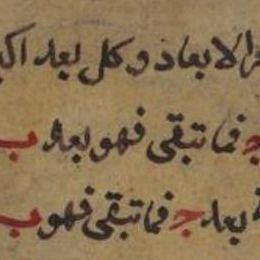 الابعاد وكل بعد اكبر
ج فما تبقى فهو بعد ب
بعد ج فما تبقى فهو ب